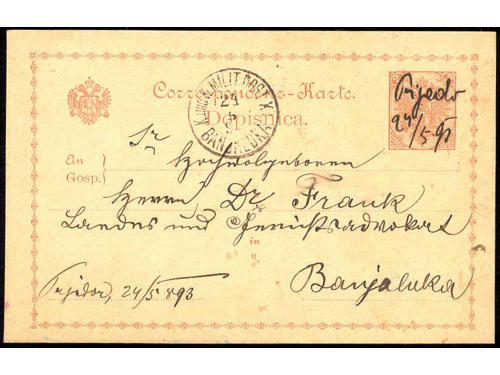 Correspondenz-Karte.
Dopisnica.
K. und K. MILIT. POST X.
24
5
BANJALUKA
Prjedor
24/5 93
An
Gosp.
Sr Hochwolgeboren
Herrn Dr. Frank
Landes und Gerichtsadvokat
in
u
Banjaluka
Prjedor, 24/5 893